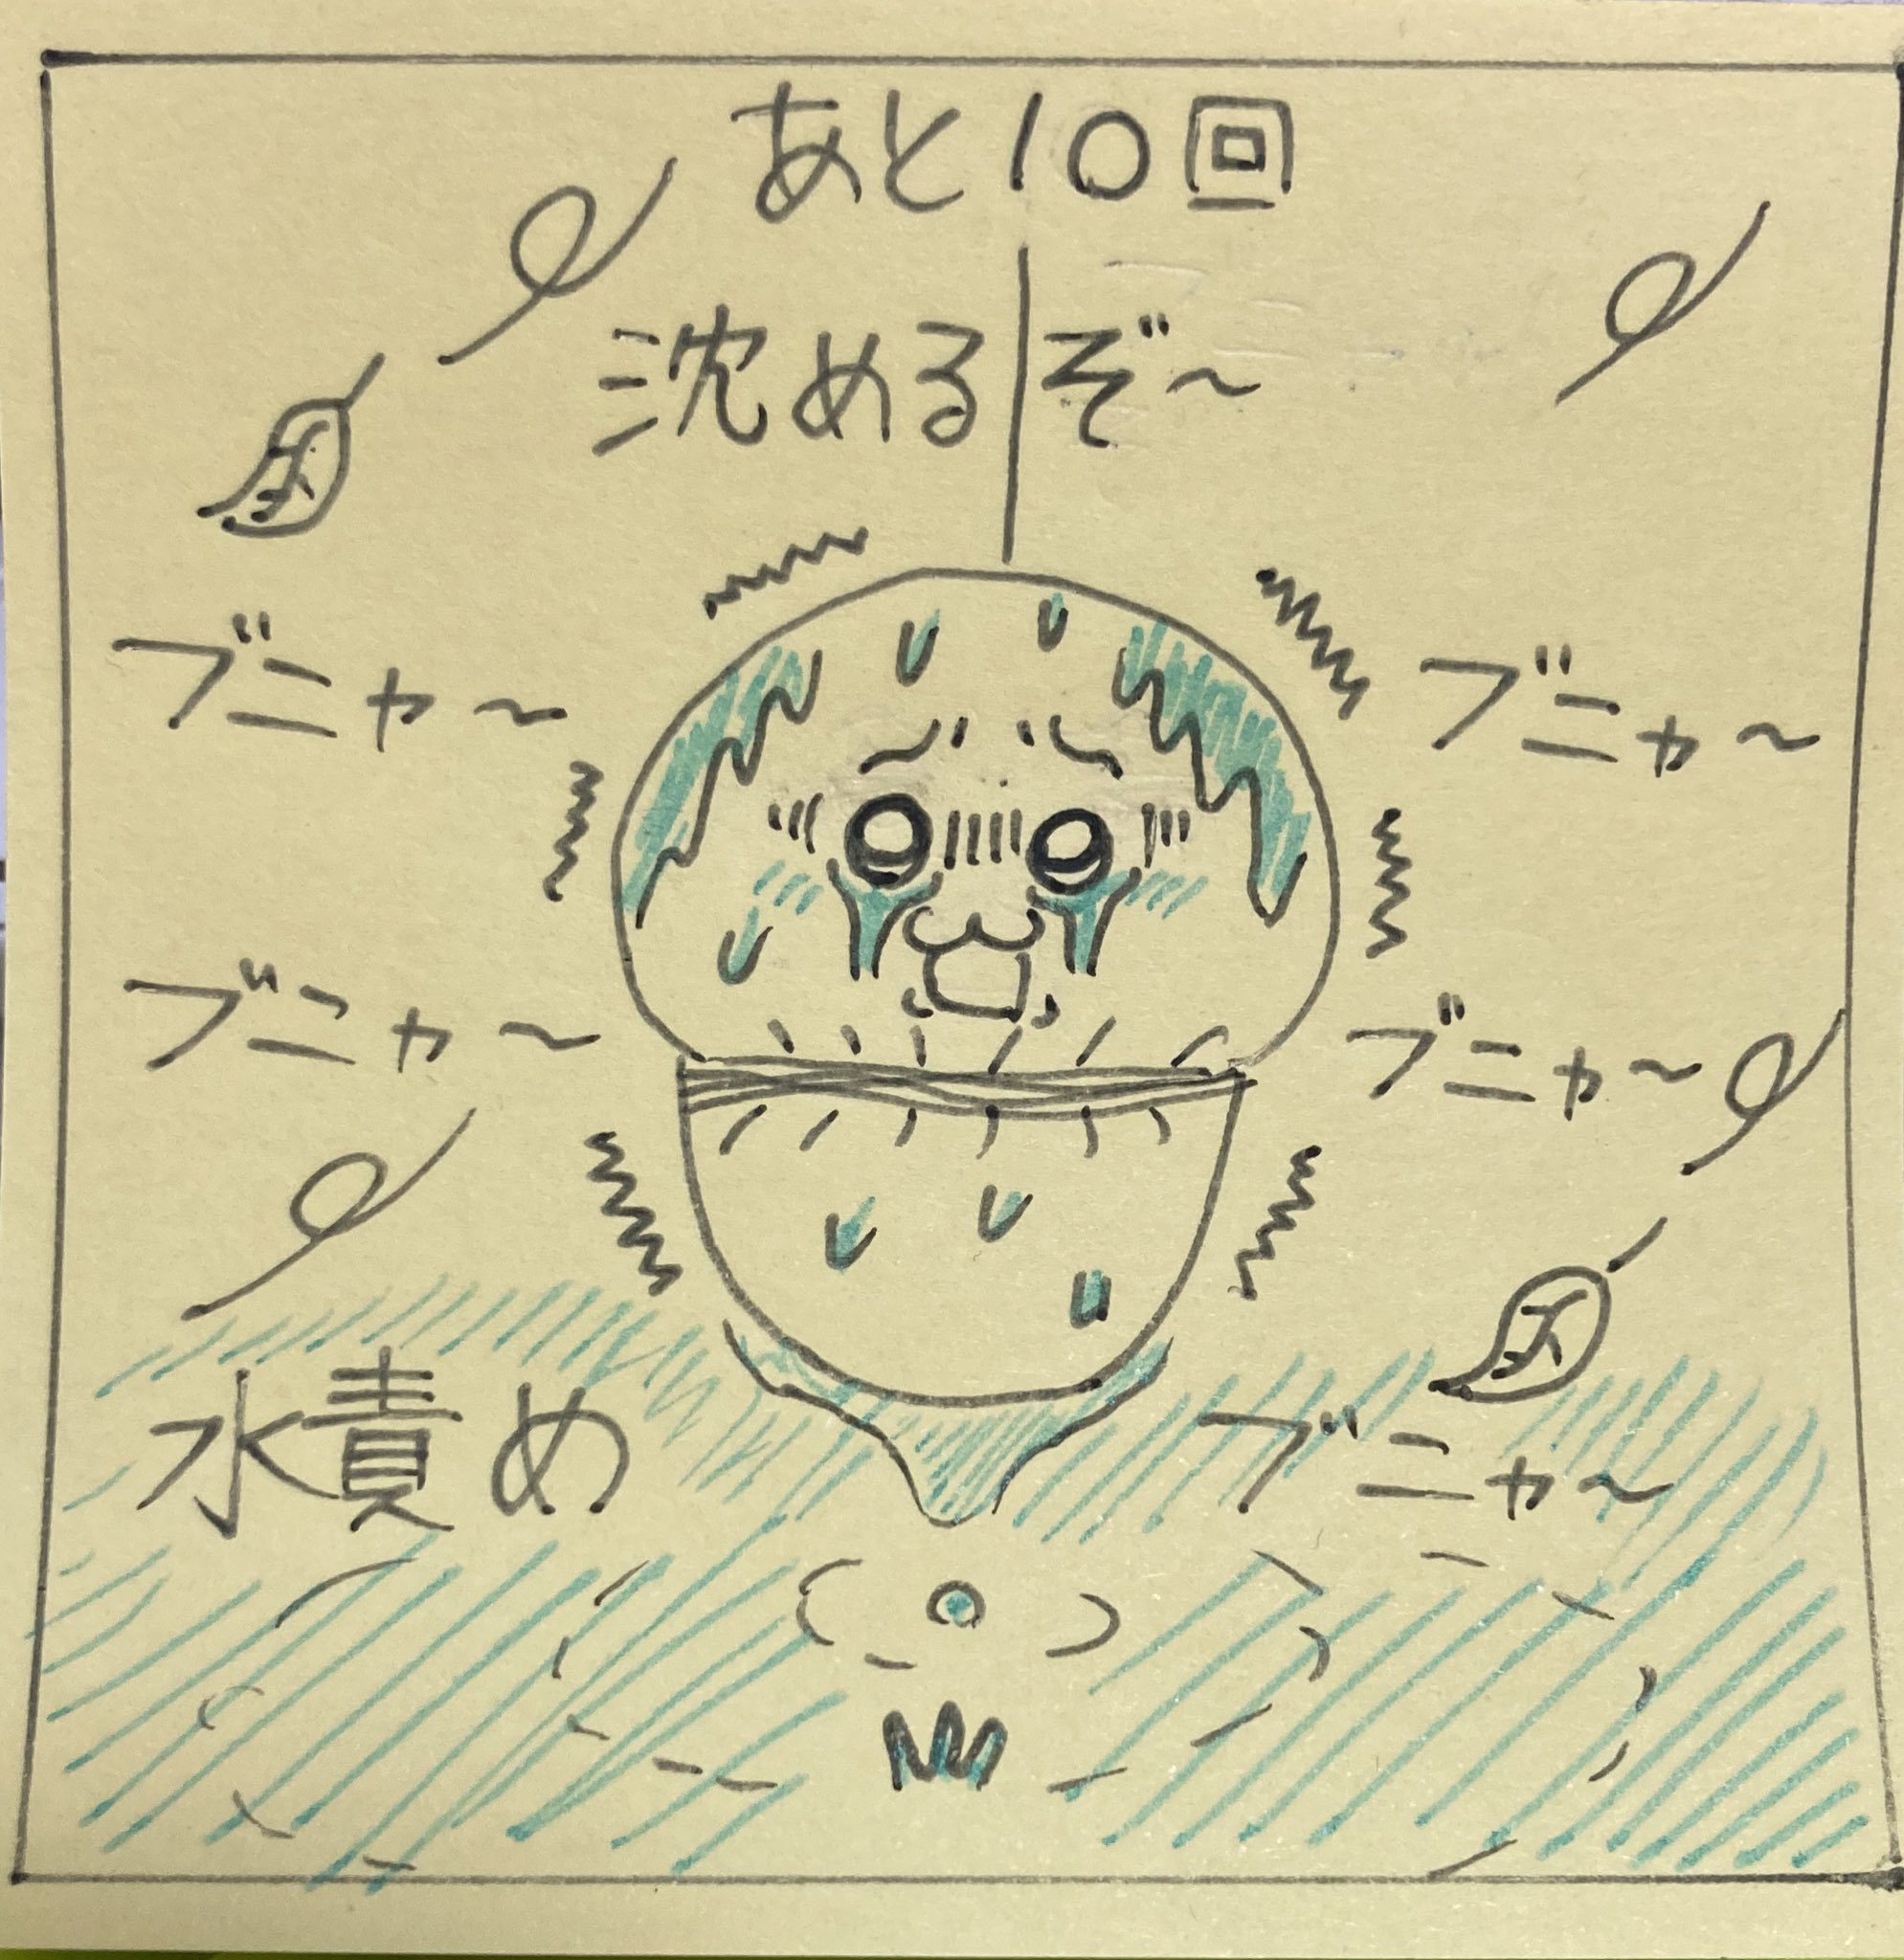 あと10回
沈めるぞ〜
ブニャ〜
ブニャ〜
ブニャ〜
ブニャ〜
水責め
ブニャ〜